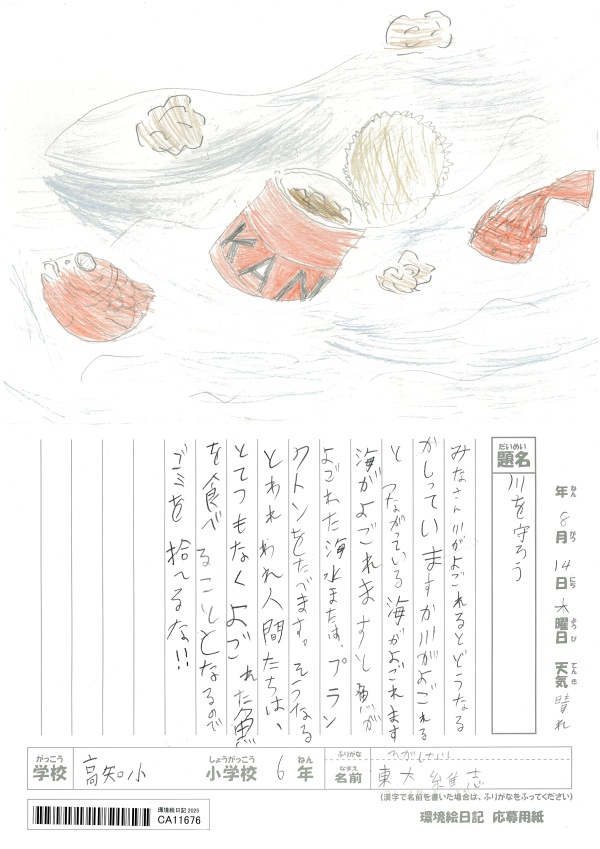 KAN
年 8月 14日 木曜日 天気 晴れ
ねん がつ にち ようび てんき
だいめい
題名
川を守ろう
みなさん川がよごれるとどうなる
かしっていますか川がよごれる
と つながっている海がよごれます
海がよごれますと魚が
よごれた海水または、プラン
クトンをたべます。そうなる
とわれわれ人間たちは、
とてつもなくよごれた魚
を食べることとなるので
ゴミを捨てるな!!
がっこう
学校 高知小
しょうがっこう ねん
小学校 6年
ふりがな
なまえ
名前 東大
(漢字で名前を書いた場合は、ふりがなをふってください)
環境絵日記 2025
CA11676
環境絵日記 応募用紙